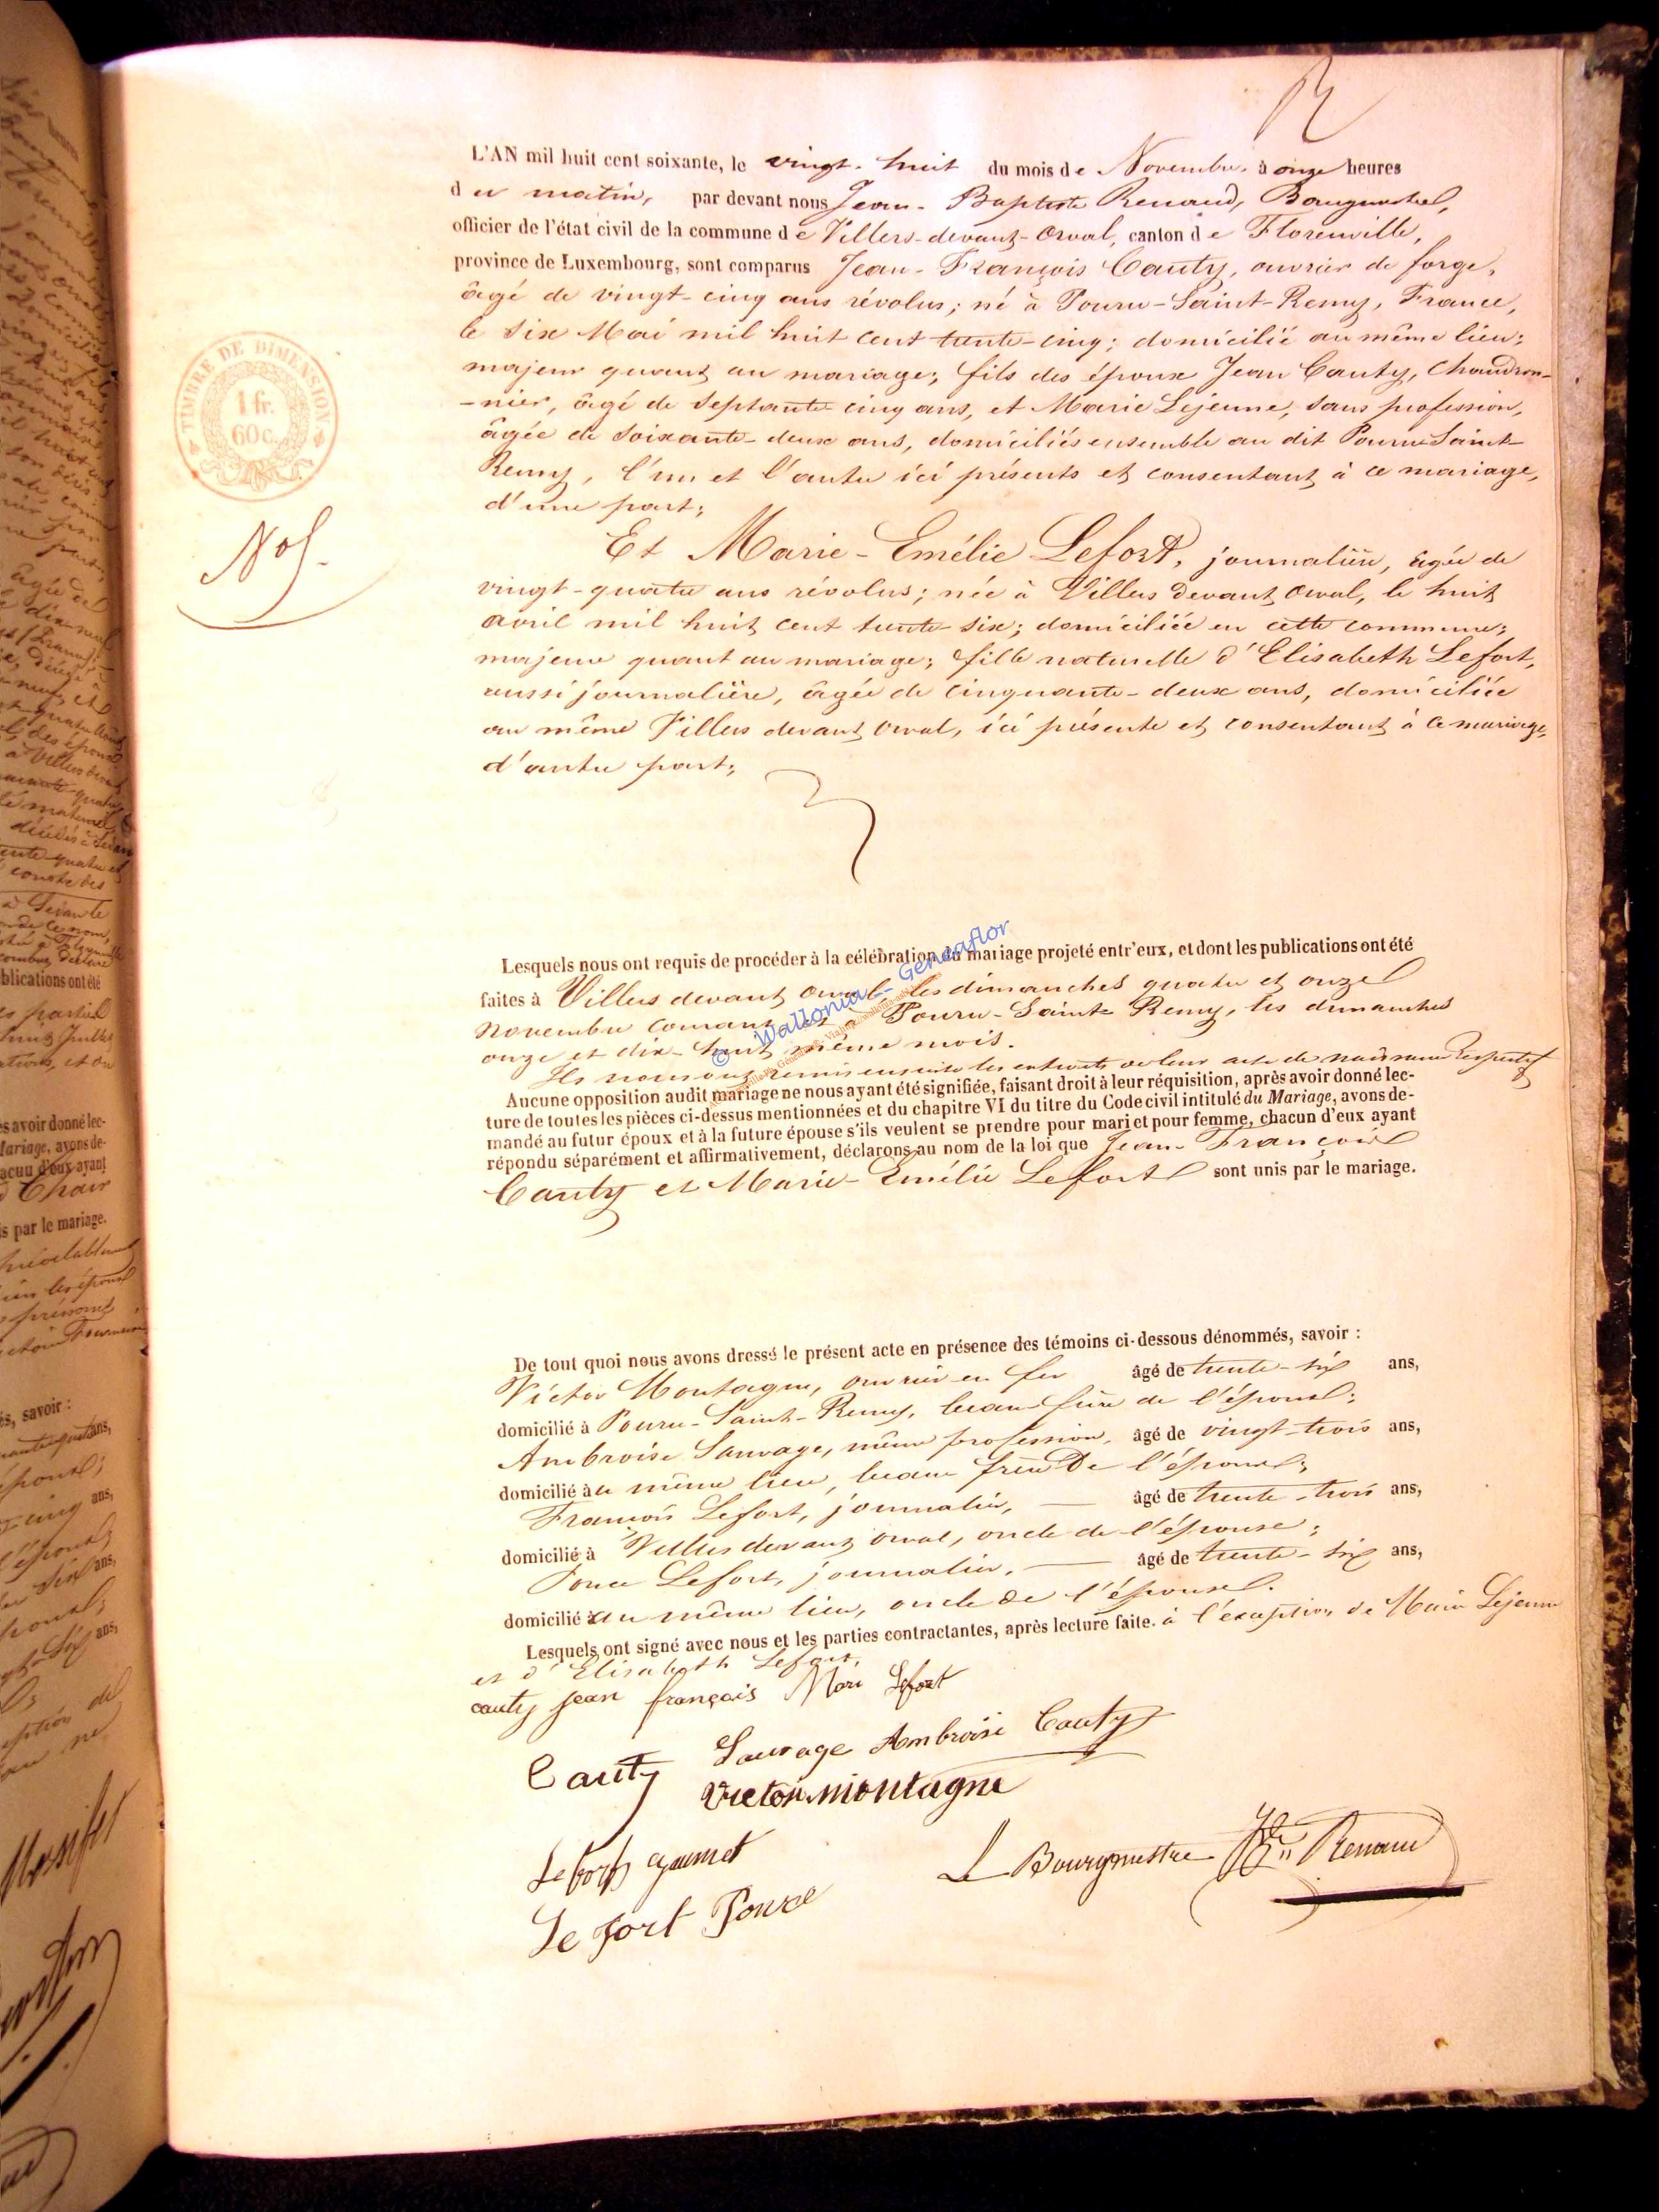 L'AN mil huit cent soixante, le vingt-huit du mois de Novembre à onze heures
du matin, par devant nous Jean-Baptiste Renaud, Bourgmestre,
officier de l'état civil de la commune de Villers-devant-Orval, canton de Florenville,
province de Luxembourg, sont comparus Jean-François Cauty, ouvrier de forge,
âgé de vingt-cinq ans révolus; né à Pouru-Saint-Remy, France,
le six Mai mil huit cent trente-cinq; domicilié au même lieu;
majeur quant au mariage; fils des époux Jean Cauty, chaudron-
-nier, âgé de septante cinq ans, et Marie Lejeune, sans profession,
âgée de soixante-deux ans, domiciliés ensemble au dit Pouru Saint-
Remy, l'un et l'autre ici présents et consentant à ce mariage,
d'une part;
TIMBRE DE DIMENSION
1 fr.
60 c.
N° 5.
Et Marie-Emélie Lefort, journalière, âgée de
vingt-quatre ans révolus; née à Villers devant Orval, le huit
avril mil huit cent trente-six; domiciliée en cette commune;
majeure quant au mariage; fille naturelle d'Elisabeth Lefort,
aussi journalière, âgée de cinquante-deux ans, domiciliée
au même Villers devant Orval, ici présente et consentant à ce mariage,
d'autre part;
Lesquels nous ont requis de procéder à la célébration du mariage projeté entr'eux, et dont les publications ont été
faites à Villers devant Orval les dimanches quatre et onze
novembre courant et à Pouru-Saint-Remy, les dimanches
onze et dix-huit même mois.
© Wallonia - Geneaflor
Ils nous ont remis ensuite les extraits de leur acte de naissance respectif
Aucune opposition audit mariage ne nous ayant été signifiée, faisant droit à leur réquisition, après avoir donné lec-
ture de toutes les pièces ci-dessus mentionnées et du chapitre VI du titre du Code civil intitulé du Mariage, avons de-
mandé au futur époux et à la future épouse s'ils veulent se prendre pour mari et pour femme, chacun d'eux ayant
répondu séparément et affirmativement, déclarons au nom de la loi que Jean-François
Cauty et Marie-Emélie Lefort sont unis par le mariage.
De tout quoi nous avons dressé le présent acte en présence des témoins ci-dessous dénommés, savoir :
Victor Montagne, ouvrier en fer âgé de trente-six ans,
domicilié à Pouru-Saint-Remy, beau-frère de l'époux;
Ambroise Sauvage, même profession, âgé de vingt-trois ans,
domicilié au même lieu, beau frère de l'époux;
François Lefort, journalier, âgé de trente-trois ans,
domicilié à Villers devant Orval, oncle de l'épouse;
Ponce Lefort, journalier, âgé de trente-six ans,
domicilié au même lieu, oncle de l'épouse.
Lesquels ont signé avec nous et les parties contractantes, après lecture faite. à l'exception de Marie Lejeune
et d'Elisabeth Lefort.
cauty jean françois Mari Lefort
Cauty Sauvage Ambroise Cauty
Victor montagne
Lefort
Le Bourgmestre J. Bte Renaud
Le fort Ponce